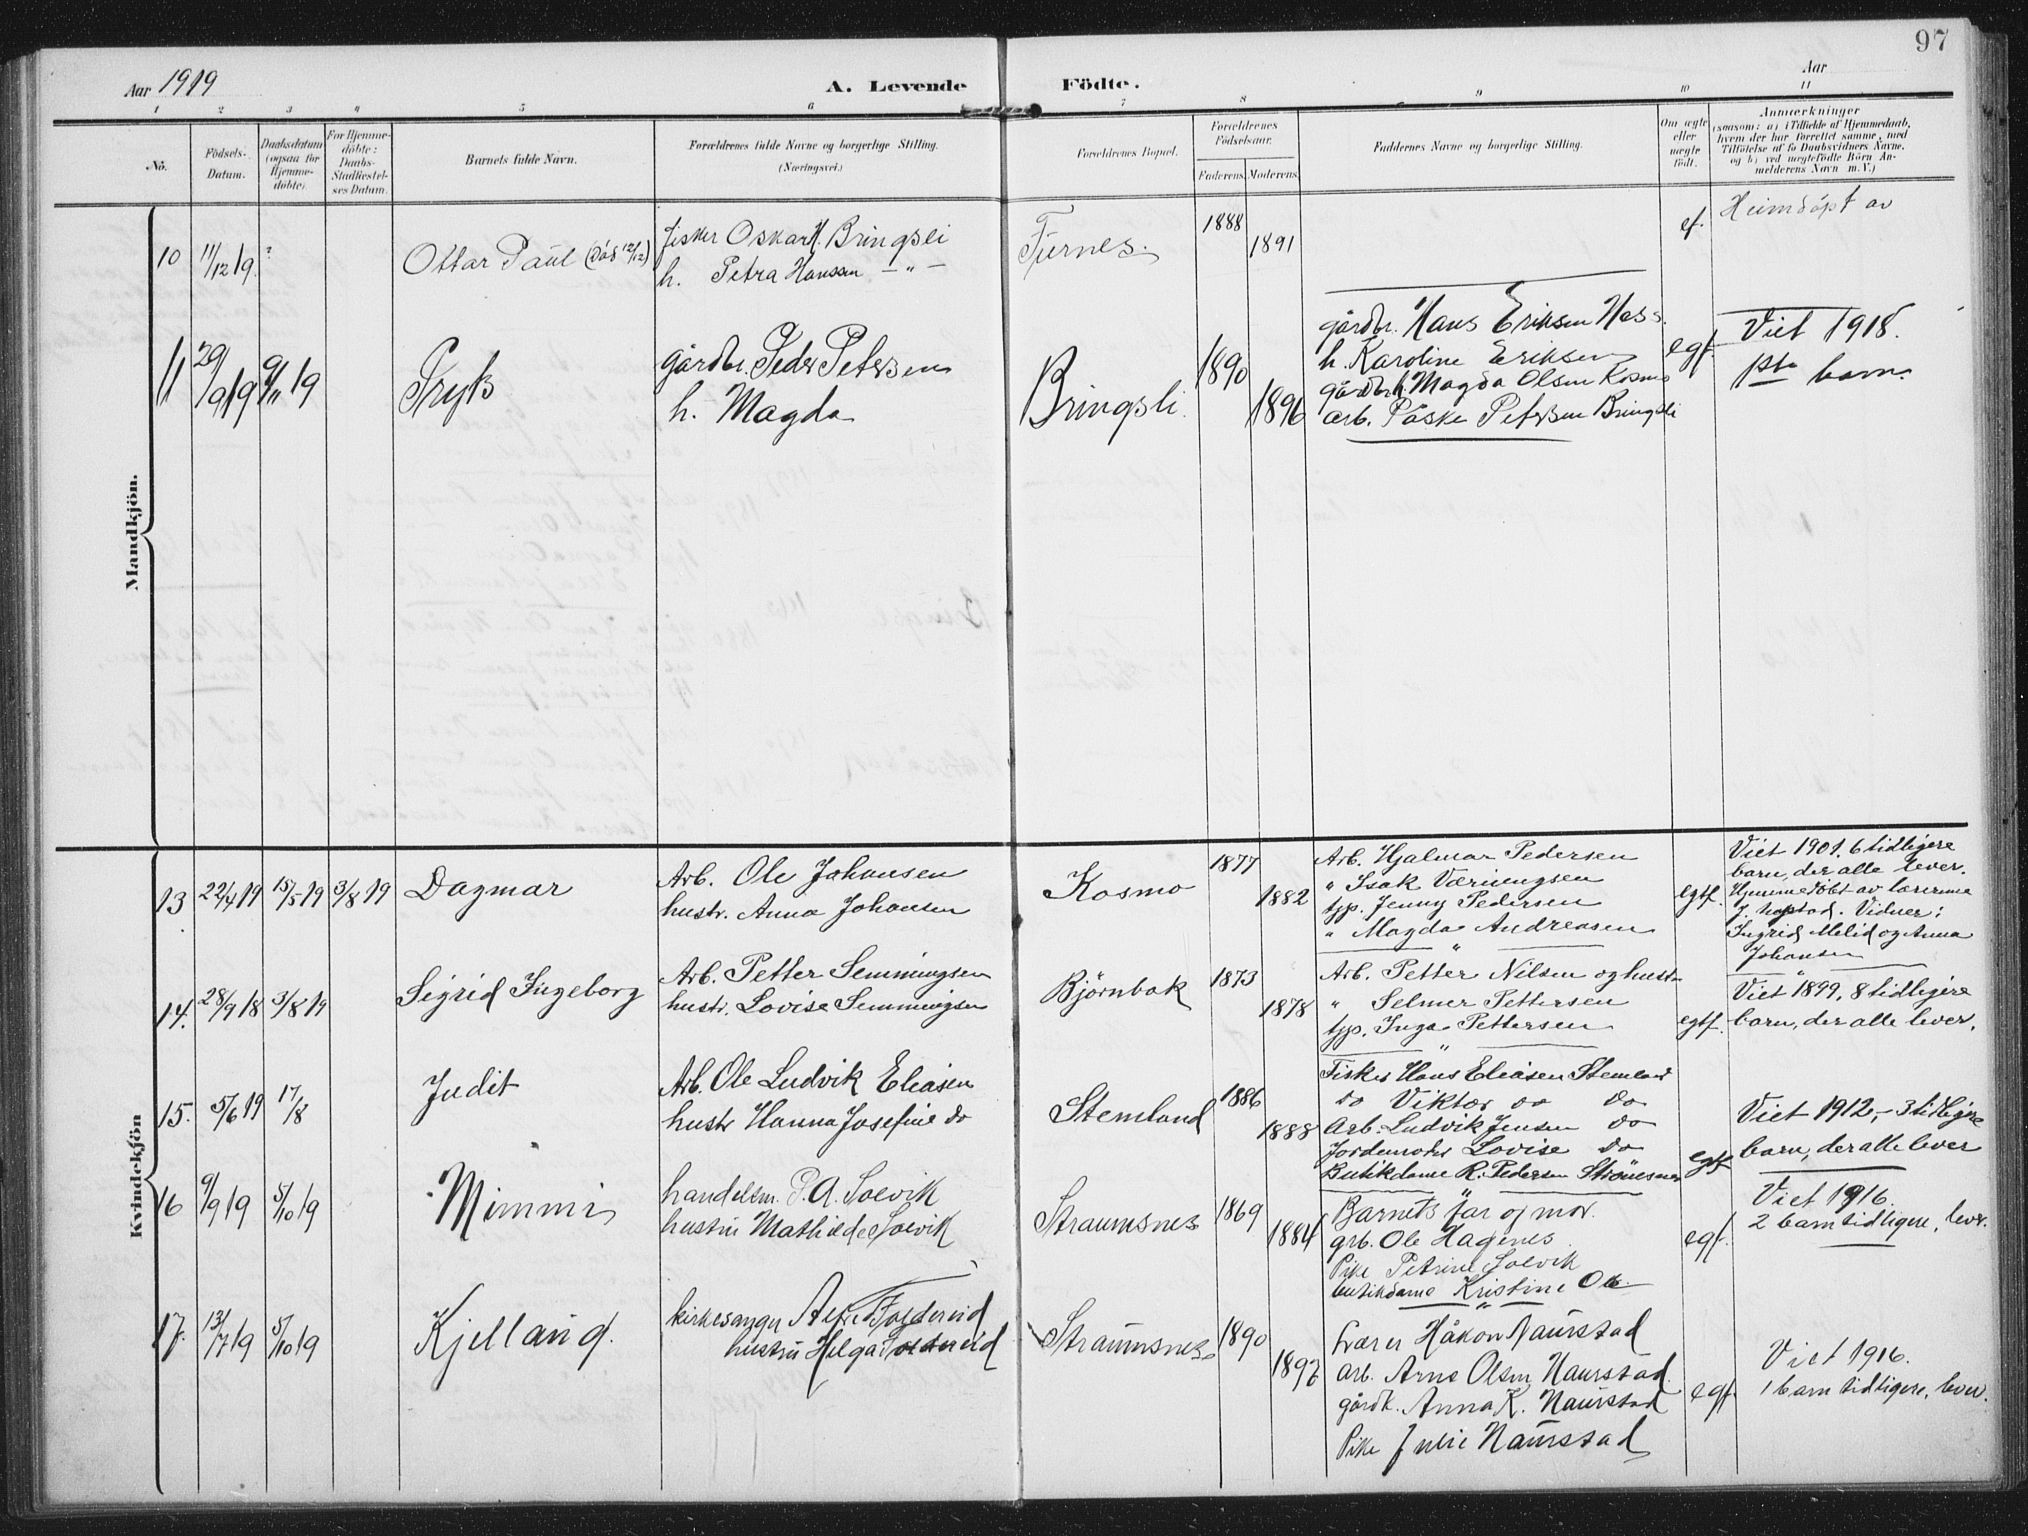 97
Aar 1919
A. Levende Födte.
Aar
1 2 3 4 5 6 7 8 9 10 11
No.
Födsels-Datum.
Daabsdatum (ogsaa for Hjemme-döbte).
For Hjemme-döbte: Daabs-Stadfæstel-ses Datum.
Barnets fulde Navn.
Forældrenes fulde Navne og borgerlige Stilling. (Næringsvei.)
Forældrenes Bopæl.
Forældrenes Födselsaar.
Faderens. Moderens.
Faddernes Navne og borgerlige Stilling.
Om ægte eller uægte født.
Anmærkninger
(saasom: a) i Tilfælde af Hjemmedaab, hvem der har forrettet samme, med Tilföielse af to Daabsvidners Navne, og b) ved uægtefödte Börn An-melderens Navn m.V.)
Mandkjön.
10 11/12 19 ? Ottar Paul (död 12/12) fisker Oskar H. Bringsli
h. Petra Hanssen — " — Furnes. 1888 1891 ef. Heimdöpt av
11 29/9 19 9/11 19 Tryts gårdbr. Peder Petersen
h. Magda Bringsli. 1890 1896
gårdbr. Hans Eriksen Næss.
h. Karoline Eriksen
gårdbr. h. Magda Olsen Kosmo
arb. Påske Petersen Bringsli
egf. Viet 1918.
1ste barn.
Kvindekjön
13 22/4 19 15/5 19 3/8 19 Dagmar Arb. Ole Johansen
hustr. Anna Johansen Kosmo 1877 1882
Arb. Hjalmar Pedersen
" Isak Værningsen
typ. Jenny Pedersen
" Magda Andreasen
egtf. Viet 1901. 6 tidligere
barn, der alle lever.
Hjemmedöbt av lærerinne
J. Vidner:
Ingrid Melid og Anna
Johansen
14. 28/9 18 3/8 19 Sigrid Ingeborg Arb. Petter Semmingsen
hustr. Lovise Semmingsen Björnbak 1873 1878
Arb. Petter Nilsen og hustr.
" Selmer Pettersen
typ. Inga Pettersen
egtf. Viet 1899, 8 tidligere
barn, der alle lever.
15. 5/6 19 17/8 Judit Arb. Ole Ludvik Eliasen
hustr Hanna Josefine do Stemland 1886 1888
Fisker Hans Eliasen Stemland
do Viktor do do
Arb. Ludvik Jensen do
Jordemoder Lovise do
Butikdame R. Pedersen Strömsnes
egf Viet 1912, - 3 tidligere
barn, der alle lever
16 9/9 19 5/10 19 Mimmi handelsm. P. A. Solvik
hustru Mathilde Solvik Straumsnes 1869 1884
Barnets far og mor.
grb. Ole Hagenes
Pike Petrine Solvik
butikdame Kristine
egf. Viet 1916.
2 barn tidligere, lever.
17. 13/7 19 5/10 19 Kjellaug. kirkesanger Alfred Foldereid
hustru Helga Foldereid Straumsnes 1890 1892
Lærer Håkon Naurstad
arb. Arne Olsen Naurstad.
gårdk. Anna K. Naurstad
Pike Julie Naurstad
egf Viet 1916.
1 barn tidligere, lever.